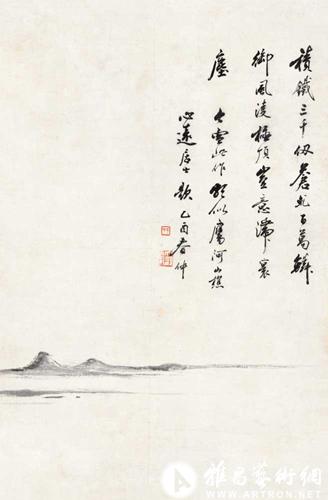 積鐵三千仞蒼虬百萬鱗
御風凌極頂豈意
塵 此作頗似鷹阿山樵
心遠居士題乙酉春仲
雅昌藝術網
WWW.ARTRON.NET